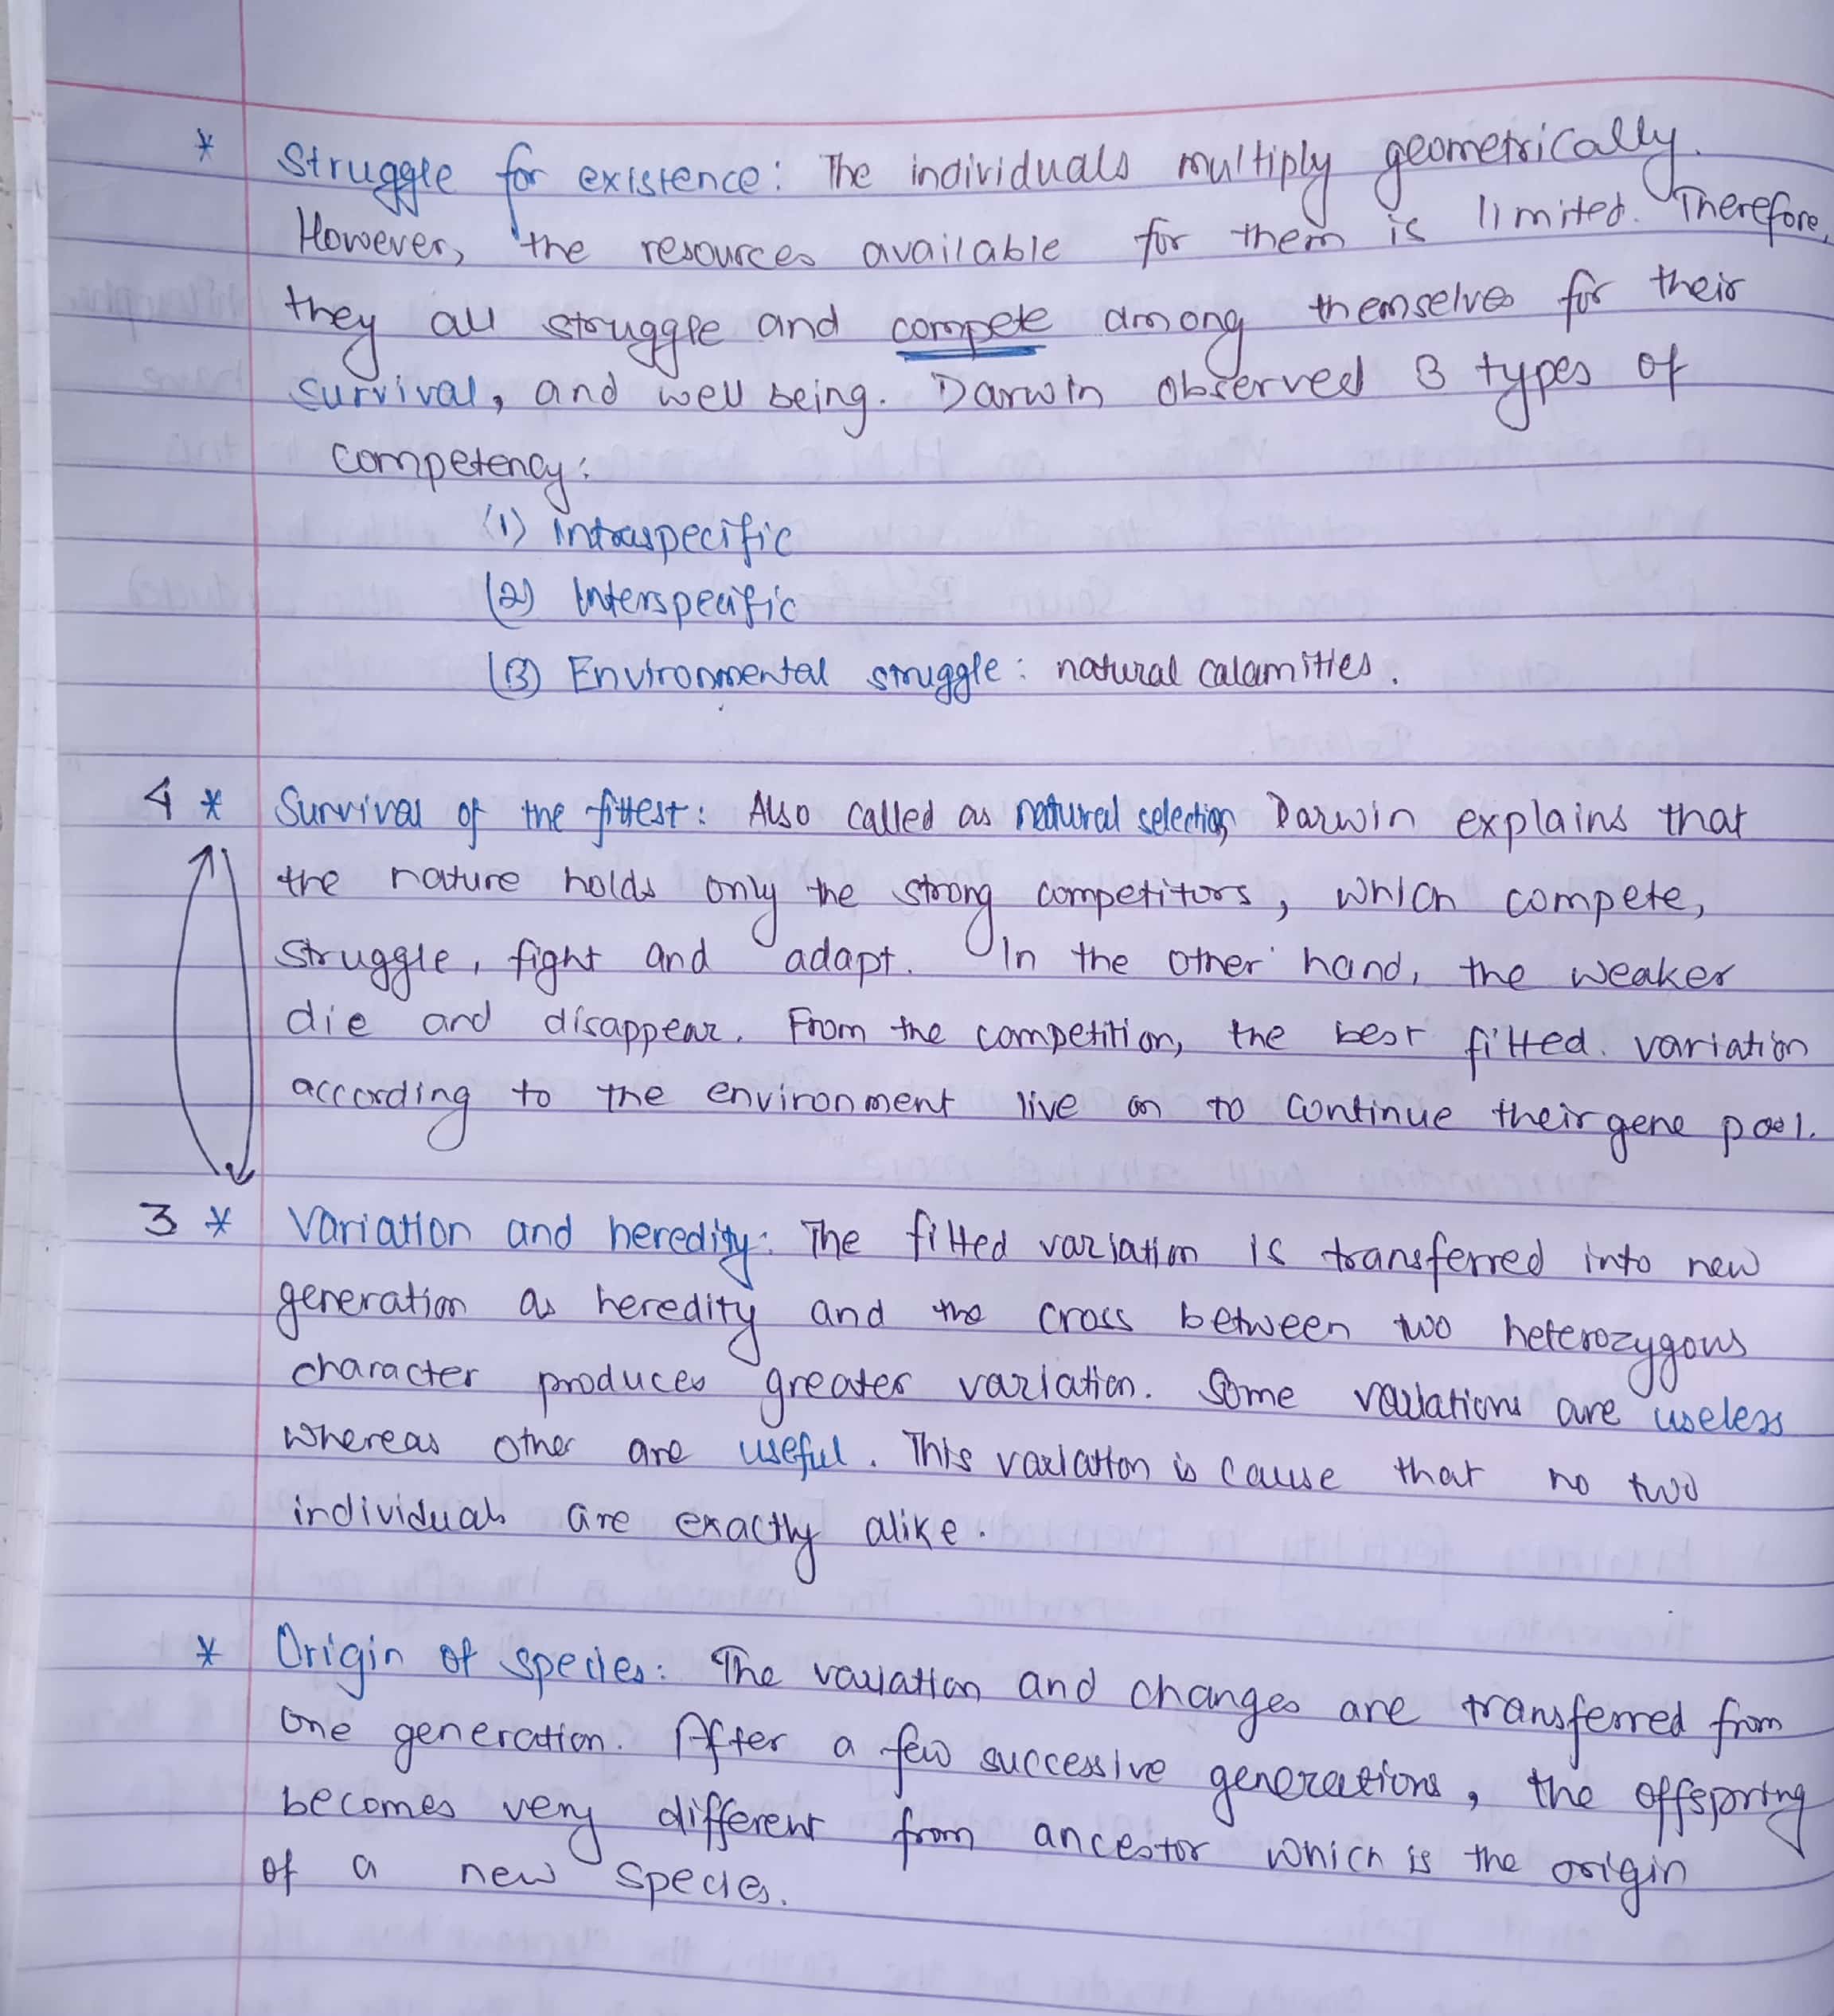 * Struggle for existence: The individuals multiply geometrically.
However, the resources available for them is limited. Therefore,
they all struggle and compete among themselves for their
survival, and well being. Darwin observed 3 types of
competency:
(1) Intraspecific
(2) Interspecific
(3) Environmental struggle: natural calamities.
4 * Survival of the fittest: Also called as natural selection, Darwin explains that
the nature holds only the strong competitors, which compete,
struggle, fight and adapt. In the other hand, the weaker
die and disappear. From the competition, the best fitted variation
according to the environment live on to continue their gene pool.
3 * Variation and heredity: The fitted variation is transferred into new
generation as heredity and the cross between two heterozygous
character produces greater variation. Some variations are useless
whereas other are useful. This variation is cause that no two
individuals are exactly alike.
* Origin of species: The variation and changes are transferred from
one generation. After a few successive generations, the offspring
becomes very different from ancestor which is the origin
of a new species.